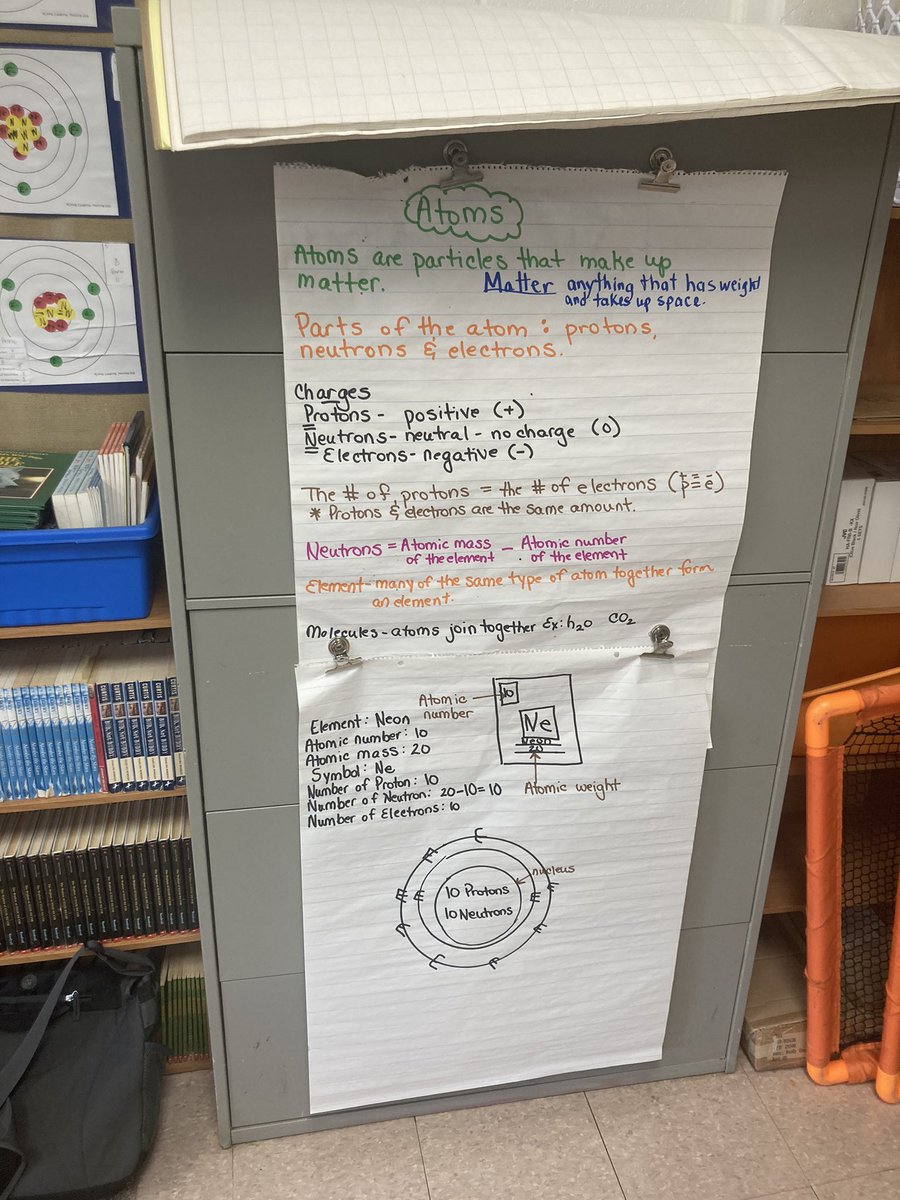 Atoms
Atoms are particles that make up
matter.
Matter anything that has weight
and takes up space.
Parts of the atom : protons,
neutrons & electrons.
Charges
Protons - positive (+)
Neutrons - neutral - no charge (0)
Electrons - negative (-)
The # of protons = the # of electrons (p̟ = ē)
* Protons & electrons are the same amount.
Neutrons = Atomic mass of the element - Atomic number of the element
Element - many of the same type of atom together form
an element.
Molecules - atoms join together Ex: h₂O CO₂
Atomic
number
10
Ne
Neon
20
Atomic weight
Element : Neon
Atomic number : 10
Atomic mass : 20
Symbol : Ne
Number of Proton : 10
Number of Neutron : 20-10=10
Number of Electrons : 10
nucleus
10 Protons
10 Neutrons
E
E
E
E
E
E
E
E
E
E
CURTIS